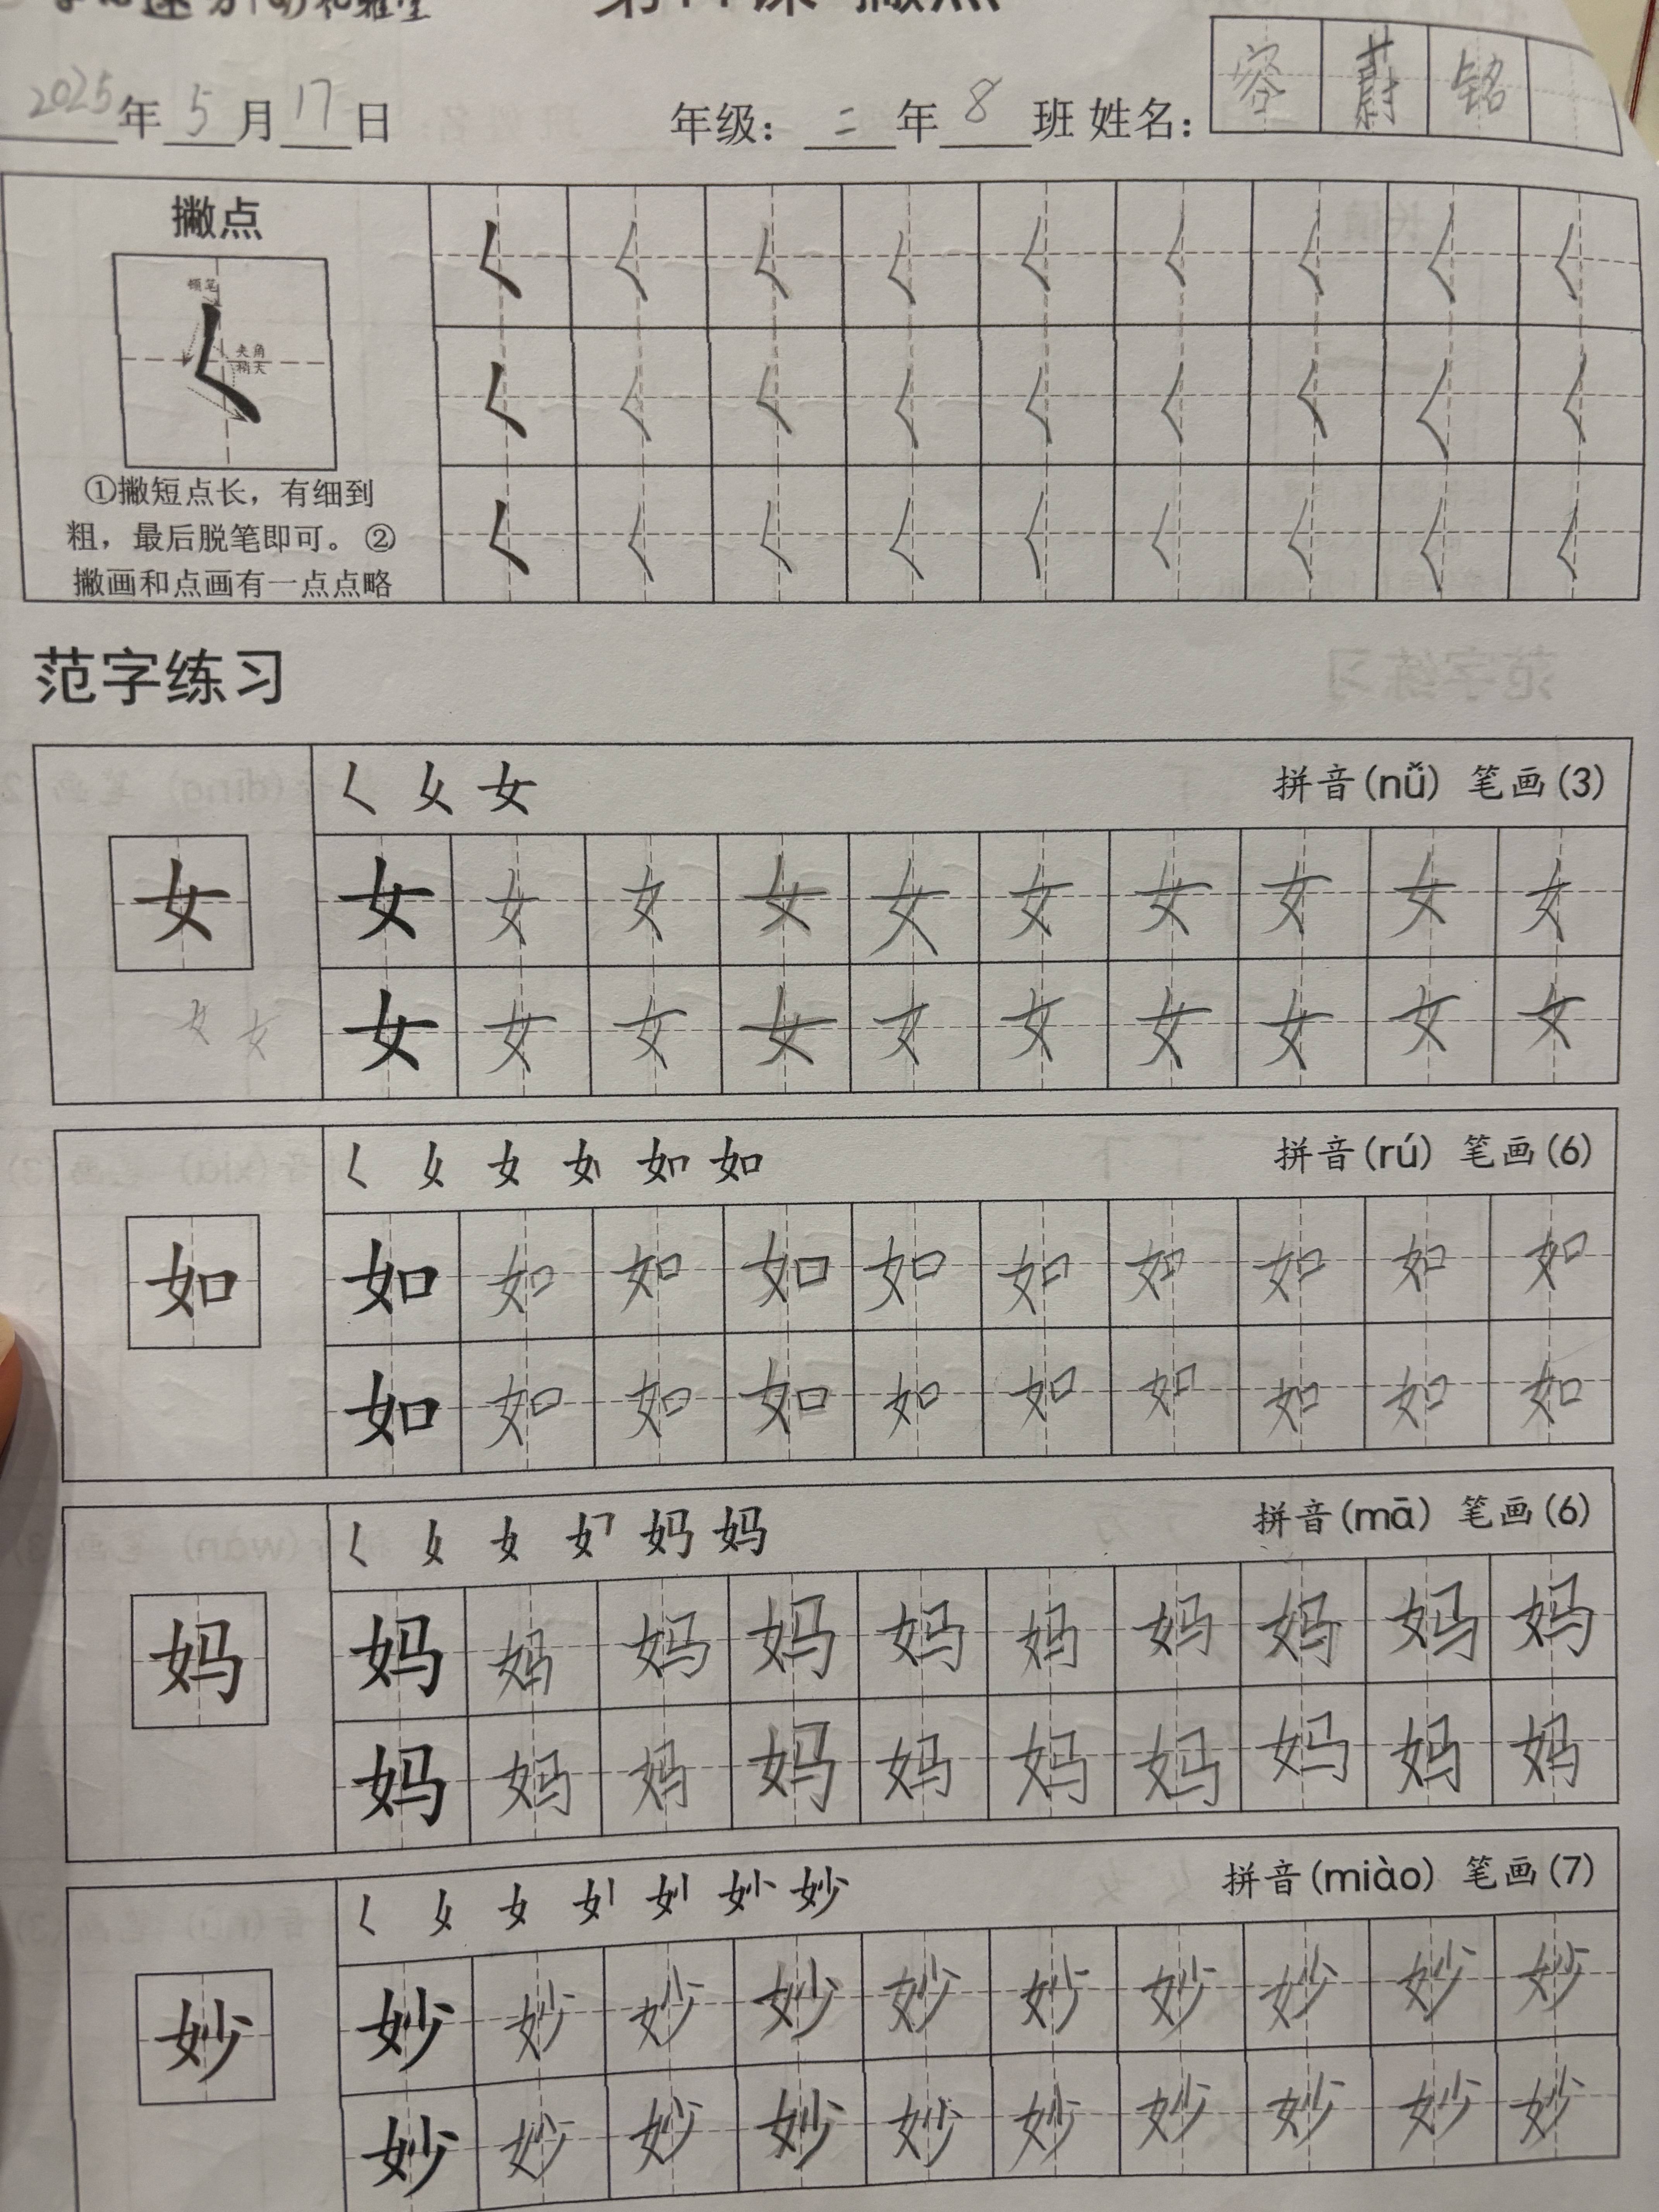 撇点
2025年5月17日 年级：二年8班 姓名：容蔚铭
撇点
顿笔
夹角
稍大
①撇短点长，有细到
粗，最后脱笔即可。②
撇画和点画有一点点略
く く く く く く く く く
く く く く く く く く く
く く く く く く く く く
范字练习
拼音(nǚ) 笔画(3)
女
女 女 女 女 女 女 女 女 女 女
女 女 女 女 女 女 女 女 女 女
女 女
拼音(rú) 笔画(6)
如
如 如 如 如 如 如 如 如 如 如
如 如 如 如 如 如 如 如 如 如
拼音(mā) 笔画(6)
妈
妈 妈 妈 妈 妈 妈 妈 妈 妈 妈
妈 妈 妈 妈 妈 妈 妈 妈 妈 妈
拼音(miào) 笔画(7)
妙
妙 妙 妙 妙 妙 妙 妙 妙 妙 妙
妙 妙 妙 妙 妙 妙 妙 妙 妙 妙